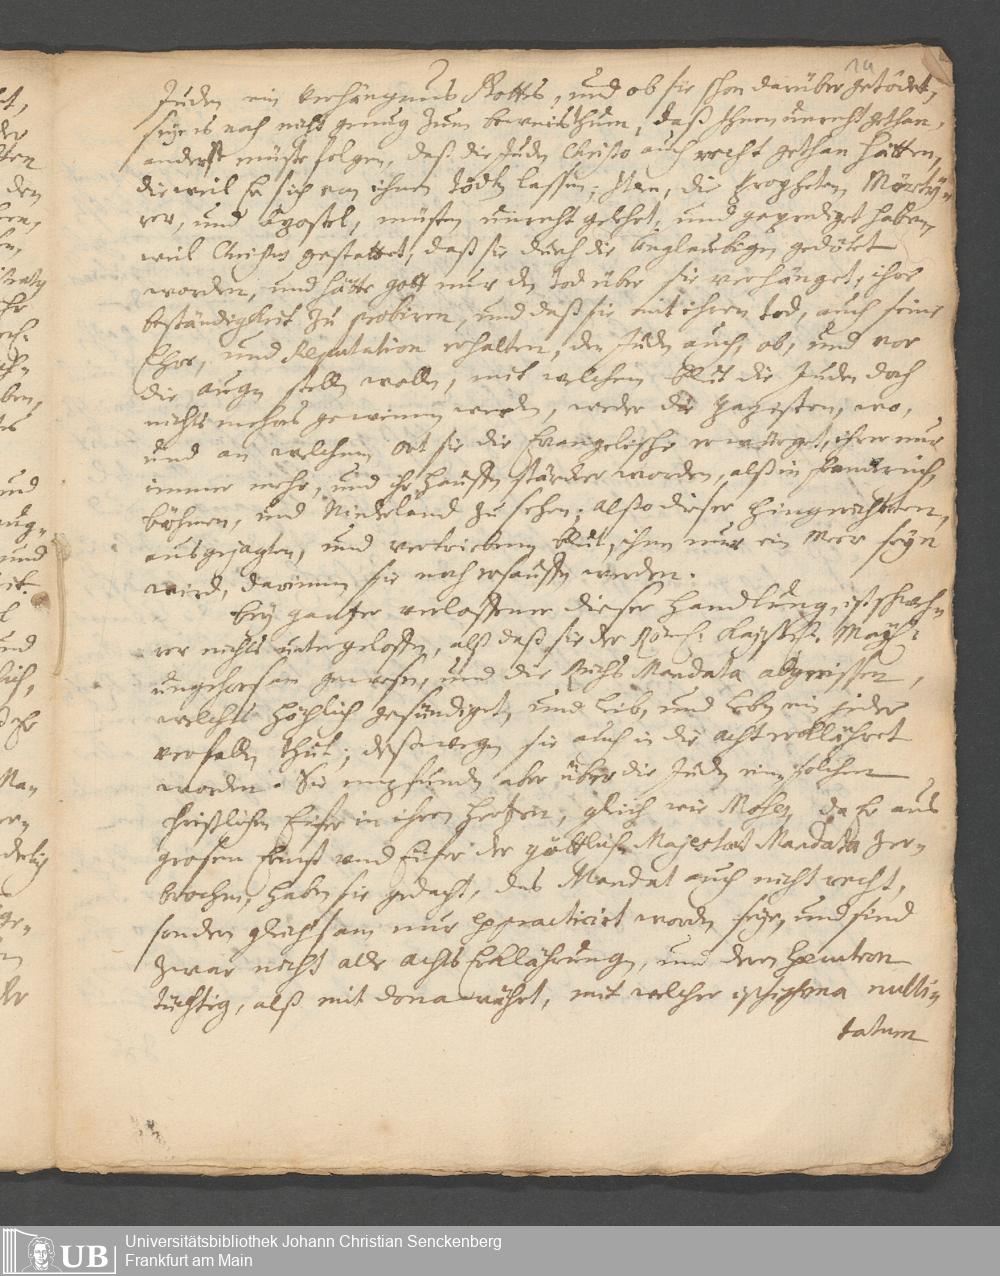 14
Juden ein Verhängnus Gottes, und ob sie schon darüber getödet,
seye es noch nicht genug zum beweisthum, daß Ihnen unrecht gethan,
anderst müste folgen, daß die Juden Christo auch recht gethan hätten,
die weil Er sich von ihnen tödten lassen; Item, die Propheten Märty-
rer, und Apostel, müsten unrecht gelehrt, und geprediget haben,
weil Christus gestattet, daß sie durch die Unglaubigen getödtet
worden, und hätte gott nur den tod über sie verhänget, ihre
beständigkeit zu probiren, und daß sie mit ihrem tod, auch seine
Ehre, und Reputation erhalten, den Juden auch, ob, und vor
die augen stellen wollen, mit welchem blut die Juden doch
nichts mehrers gewinnen werden, weder die Papisten, wo,
und an welchem Ort sie die Evangelische erwürget, ihrer nur
immer mehr, und ihr hauffen stärcker worden, alß in Franckreich,
böhmen, und Niderland zu sehen; also dieser hingerichteten,
ausgejagten, und vertriebenen blut, ihnen nur ein Meer seyn
wird, darinnen sie noch ersauffen werden.
bey gantzer verloffener dieser Handlung, ist schwe-
rer nichts untergeloffen, alß daß sie der Röm: Kayserl: May:
ungehorsam gewesen, und die Reichs Mandata abgerissen,
welches höchlich gesündiget, und leib, und leben ein jeder
verfallen thut; deßwegen sie auch in die acht erklähret
worden. Sie empfunden aber über die Juden einen solchen
christlichen Eifer in ihren Hertzen, gleich wie Moses, da Er aus
grosem Ernst und Eifer der göttlich. Majestät Mandata zer-
brochen, haben sie gedacht, das Mandat auch nicht recht,
sonder gleichsam nur expracticirt worden seye, und sind
zwar nicht alle achts Erklährungen, und deren
tüchtig, alß mit Donawährt, mit welcher nulli-
tatum
UB
Universitätsbibliothek Johann Christian Senckenberg
Frankfurt am Main